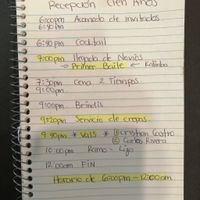 Recepción Cien Años
6:00pm Acomodo de invitados
6:30pm
6:30pm Cocktail
7:00pm llegada de Novios
→ Primer Baile ←
7:30pm Cena 2 Tiempos
9:00pm
9:00pm Brindis
9:20pm Servicio de crepas
9:30pm * Vals * ① Cristian Castro
② Carlos Rivera
10:00pm Ramo - Liga
12:00am FIN
Horario de 6:00pm - 12:00am